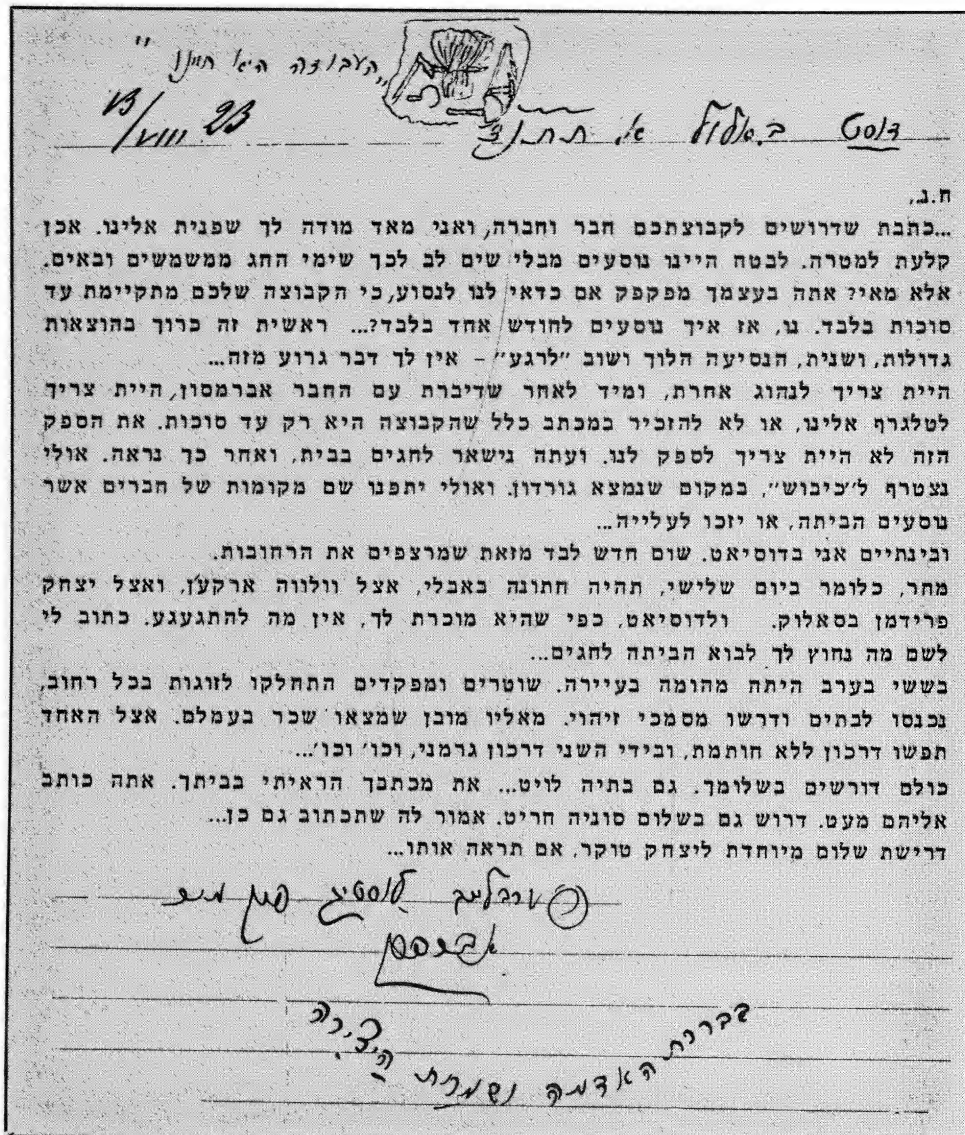 "העבודה היא חיינו"
13/VIII 23
דוסט ב. אלול א. תתנ"צ
ח.נ.,
...כתבת שדרושים לקבוצתכם חבר וחברה, ואני מאד מודה לך שפנית אלינו. אכן
קלעת למטרה. לבטח היינו נוסעים מבלי שים לב לכך שימי החג ממשמשים ובאים.
אלא מאי? אתה בעצמך מפקפק אם כדאי לנו לנסוע, כי הקבוצה שלכם מתקיימת עד
סוכות בלבד. נו, אז איך נוסעים לחודש אחד בלבד?... ראשית זה כרוך בהוצאות
גדולות, ושנית, הנסיעה הלוך ושוב "לרגע" - אין לך דבר גרוע מזה...
היית צריך לנהוג אחרת, ומיד לאחר שדיברת עם החבר אברמסון, היית צריך
לטלגרף אלינו, או לא להזכיר במכתב כלל שהקבוצה היא רק עד סוכות. את הספק
הזה לא היית צריך לספק לנו. ועתה נישאר לחגים בבית, ואחר כך נראה. אולי
נצטרף ל"כיבוש", במקום שנמצא גורדון. ואולי יתפנו שם מקומות של חברים אשר
נוסעים הביתה, או יזכו לעלייה...
ובינתיים אני בדוסיאט. שום חדש לבד מזאת שמרצפים את הרחובות.
מחר, כלומר ביום שלישי, תהיה חתונה באבלי, אצל וולווה ארקען, ואצל יצחק
פרידמן בסאלוק. ולדוסיאט, כפי שהיא מוכרת לך, אין מה להתגעגע. כתוב לי
לשם מה נחוץ לך לבוא הביתה לחגים...
בששי בערב היתה מהומה בעיירה. שוטרים ומפקדים התחלקו לזוגות בכל רחוב,
נכנסו לבתים ודרשו מסמכי זיהוי. מאליו מובן שמצאו שכר בעמלם. אצל האחד
תפשו דרכון ללא חותמת, ובידי השני דרכון גרמני, וכו' וכו'...
כולם דורשים בשלומך. גם בתיה לויט... את מכתבך הראיתי בביתך. אתה כותב
אליהם מעט. דרוש גם בשלום סוניה חריט. אמור לה שתכתוב גם כן...
דרישת שלום מיוחדת ליצחק טוקר, אם תראה אותו...
פון מיט
בברכת האדמה ושמחת היצירה